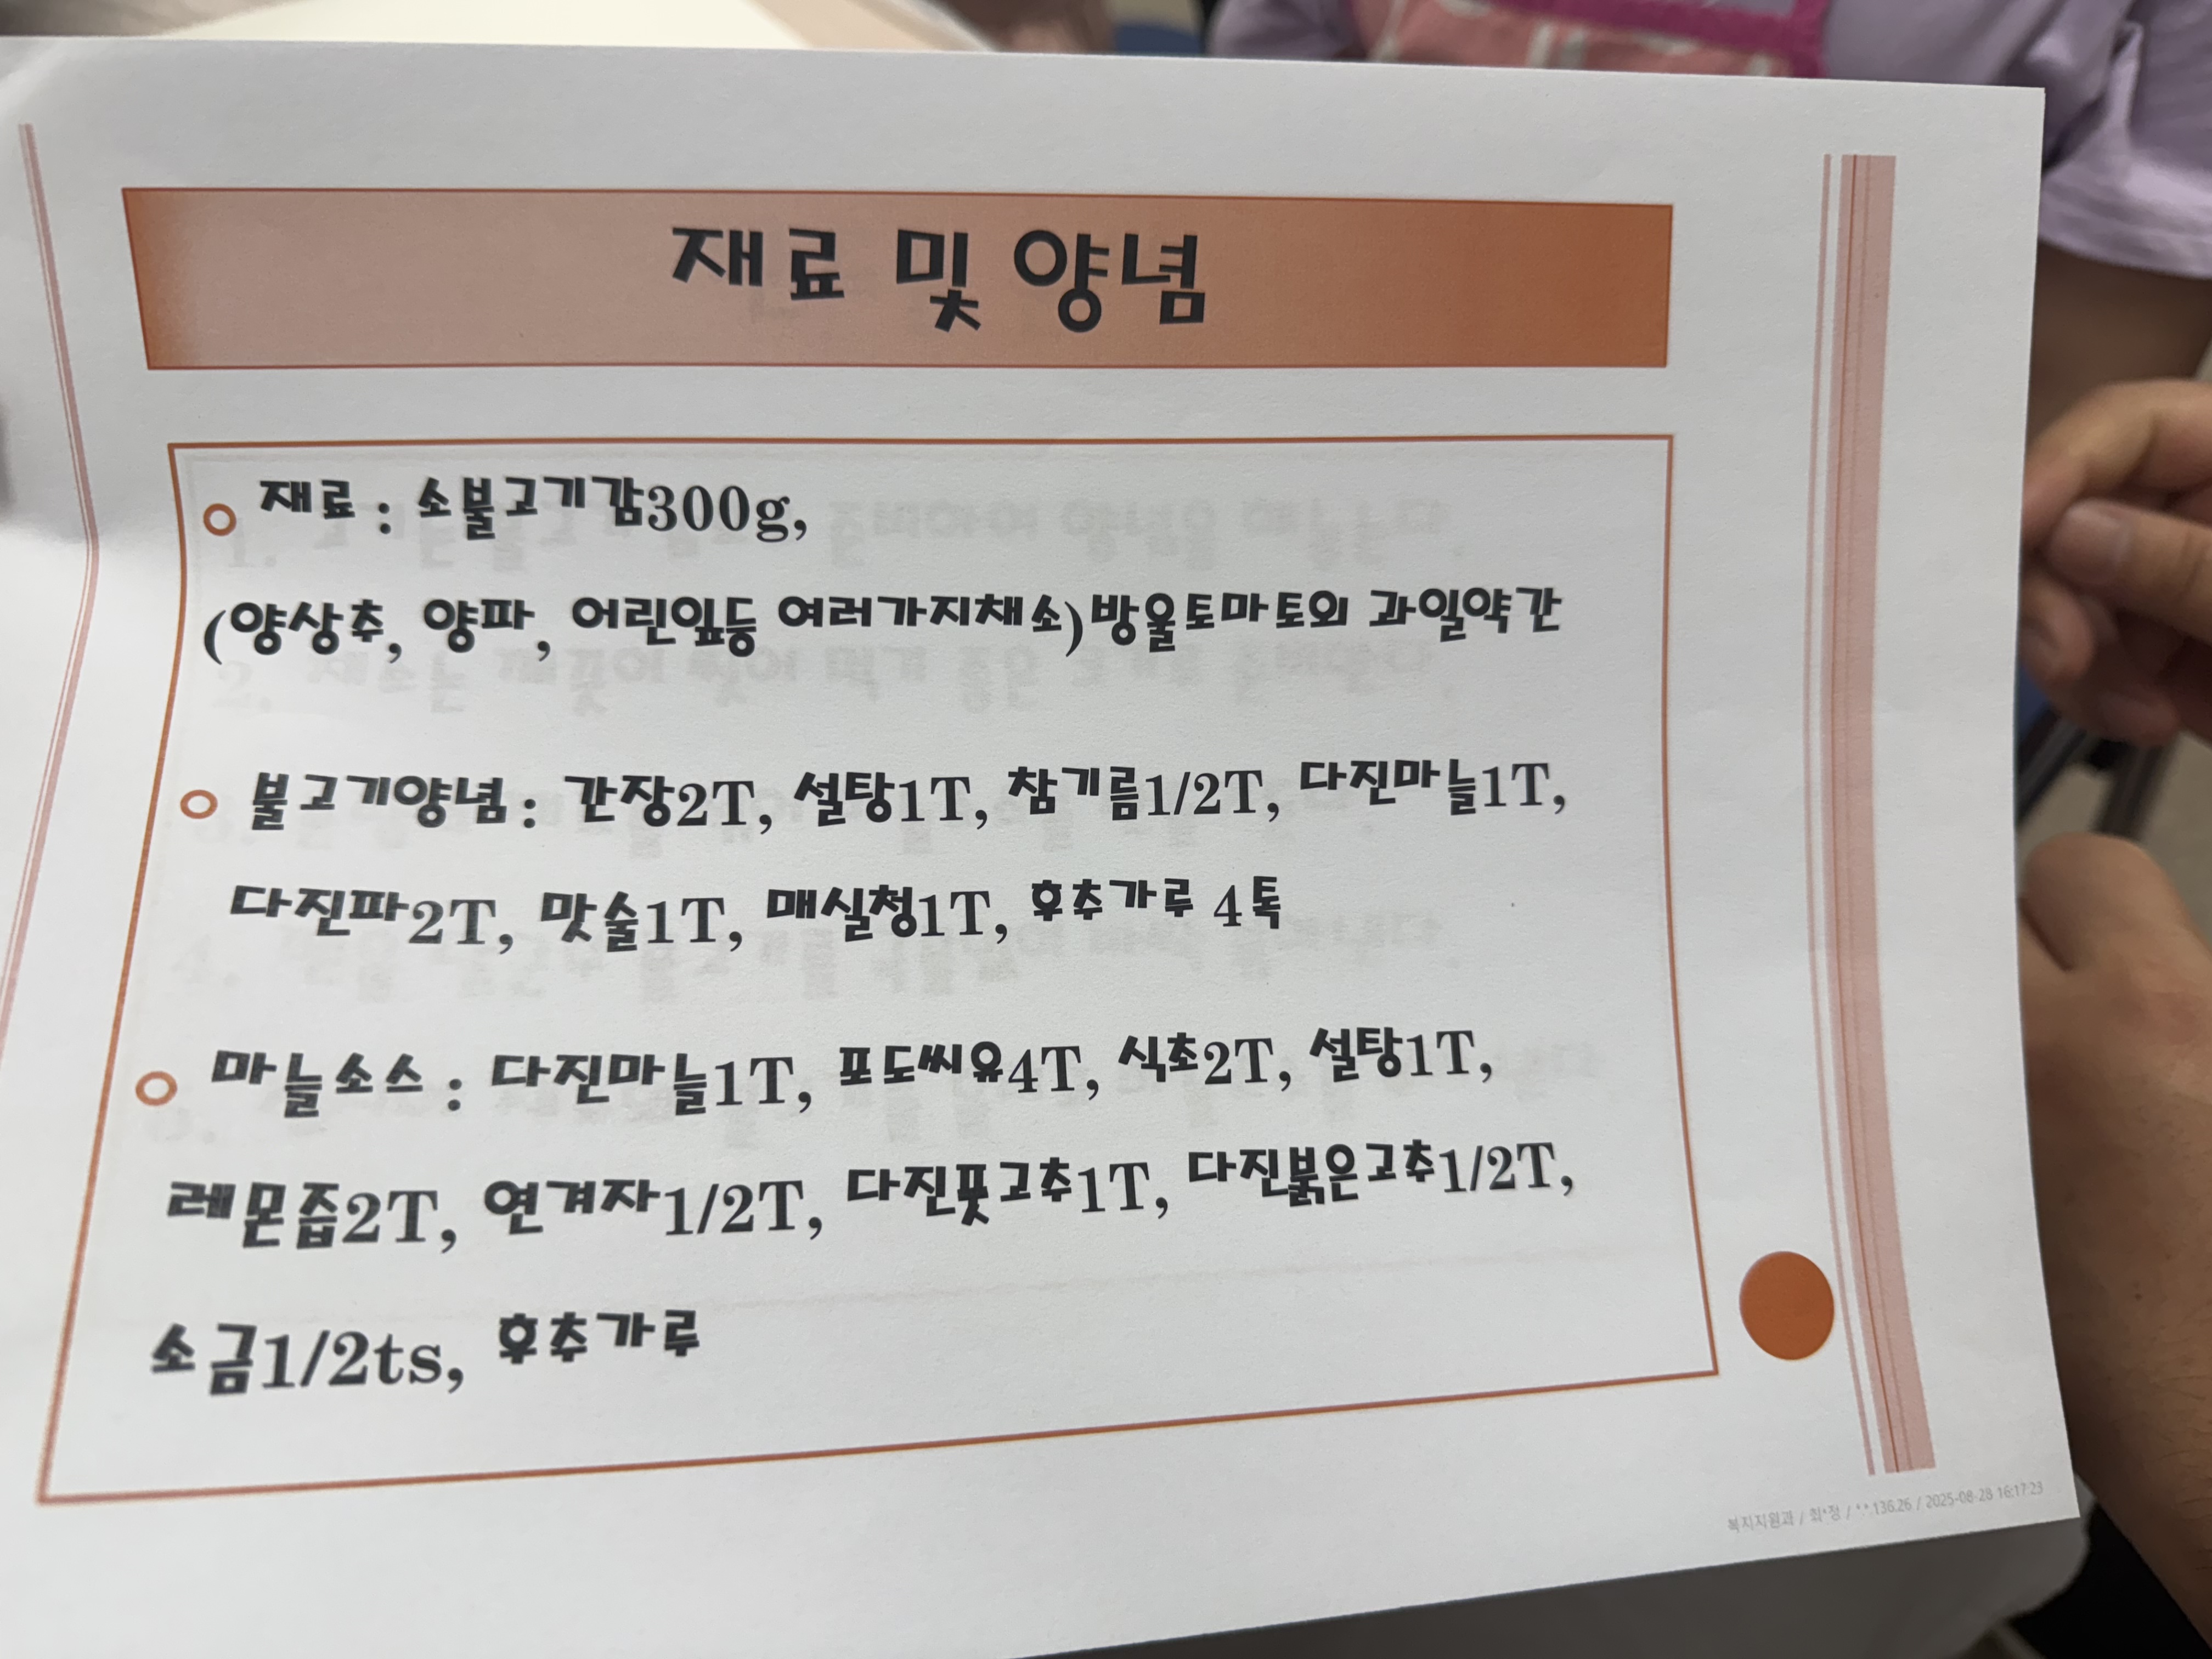 재료 및 양념
재료 : 소불고기감300g,
(양상추, 양파, 어린잎등 여러가지채소)방울토마토외 과일약간
불고기양념 : 간장2T, 설탕1T, 참기름1/2T, 다진마늘1T,
다진파2T, 맛술1T, 매실청1T, 후추가루 4톡
마늘소스 : 다진마늘1T, 포도씨유4T, 식초2T, 설탕1T,
레몬즙2T, 연겨자1/2T, 다진풋고추1T, 다진붉은고추1/2T,
소금1/2ts, 후추가루
복지지원과 / 최*정 / *.*.136.26 / 2025-08-28 16:17:23